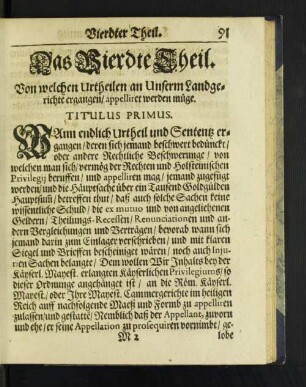 Vierdter Theil. 91
Das Vierdte Theil.
Von welchen Urtheilen an Unserm Landge-
richte ergangen/ appelliret werden müge.
TITULUS PRIMUS.
WAnn endlich Urtheil und Sententz er-
gangen/ deren sich jemand beschwert bedünckt/
oder andere Rechtliche Beschwerunge/ von
welchen man sich/ vermög der Rechten und Holsteinischen
Privilegij beruffen/ und appelliren mag/ jemand zugefügt
werden/ und die Häuptsache über ein Tausend Goldgülden
Häuptsum/ betreffen thut/ daß auch solche Sachen keine
wissentliche Schuld/ die ex mutuo und von angeliehenen
Geldern/ Theilungs-Recessen/ Renunciationen und an-
dern Vergleichungen und Verträgen/ bevorab wann sich
jemand darin zum Einlager verschrieben/ und mit klaren
Siegel und Brieffen bescheiniget wären/ noch auch Inju-
rien Sachen belangte/ Dem wollen Wir Inhalts bey der
Käyserl. Mayest. erlangten Käyserlichen Privilegiums/ so
dieser Ordnunge angehänget ist/ an die Röm. Käyserl.
Mayest./ oder Ihre Mayest. Cammergerichte im heiligen
Reich auff nachfolgende Maeß und Formb zu appelliren
zulassen/ und gestatten/ Nemblich daß der Appellant, zuvorn
und ehe/ er seine Appellation zu prosequiren vornimbt/ ge-
M 2 lobe